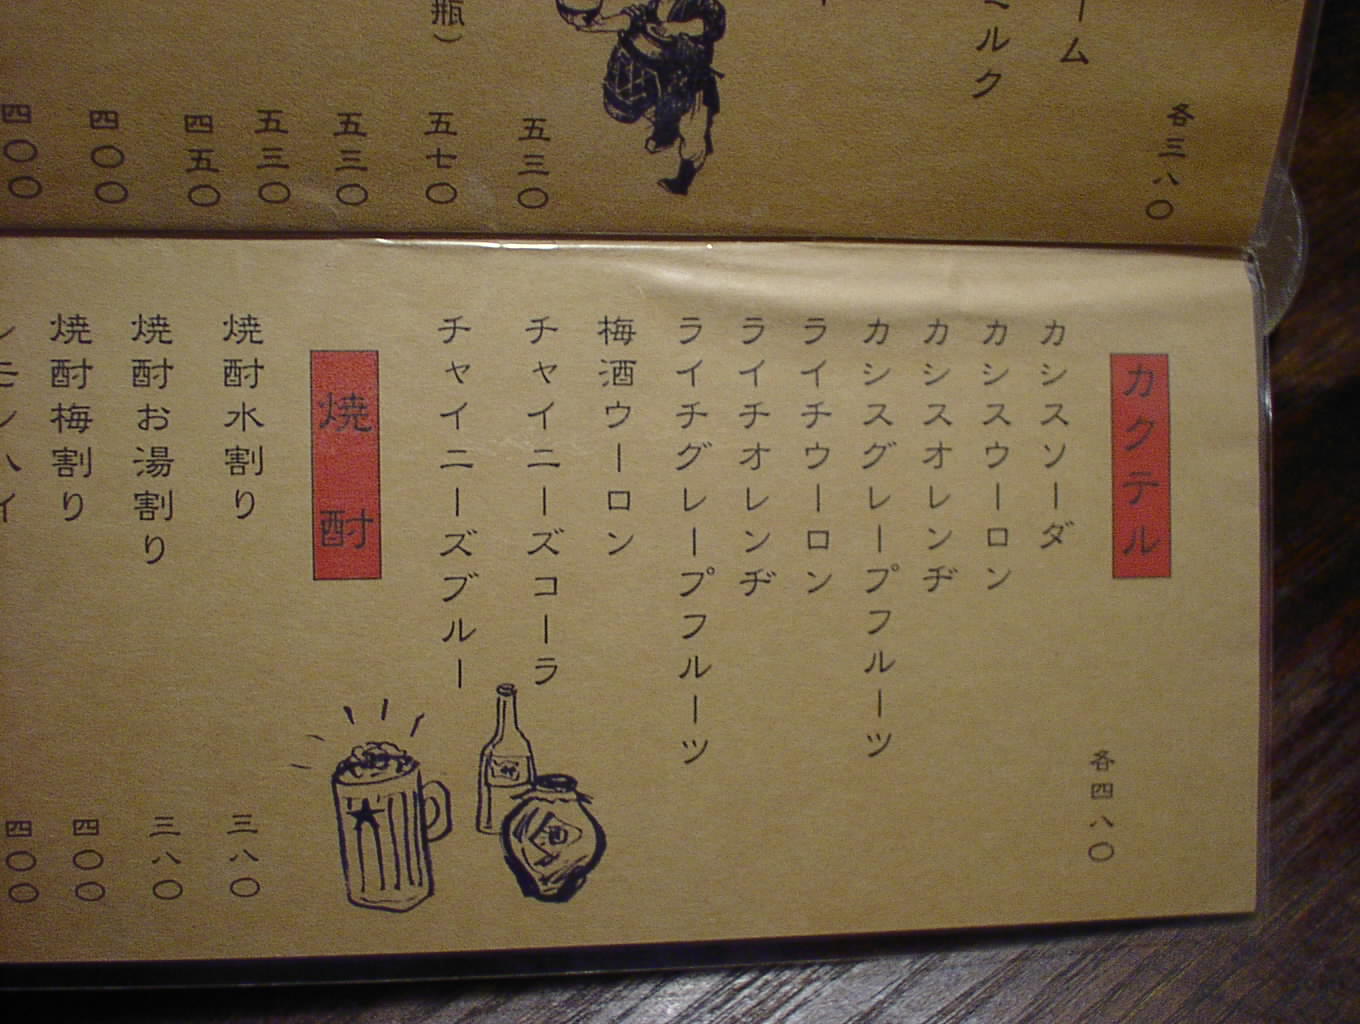 ーム
ルク
各三八〇
瓶）
五三〇
五七〇
五三〇
五三〇
四五〇
四〇〇
四〇〇
カクテル
各四八〇
カシスソーダ
カシスウーロン
カシスオレンヂ
カシスグレープフルーツ
ライチウーロン
ライチオレンヂ
ライチグレープフルーツ
梅酒ウーロン
チャイニーズコーラ
チャイニーズブルー
酒
焼酎
焼酎水割り
三八〇
焼酎お湯割り
三八〇
焼酎梅割り
四〇〇
レモンハイ
四〇〇